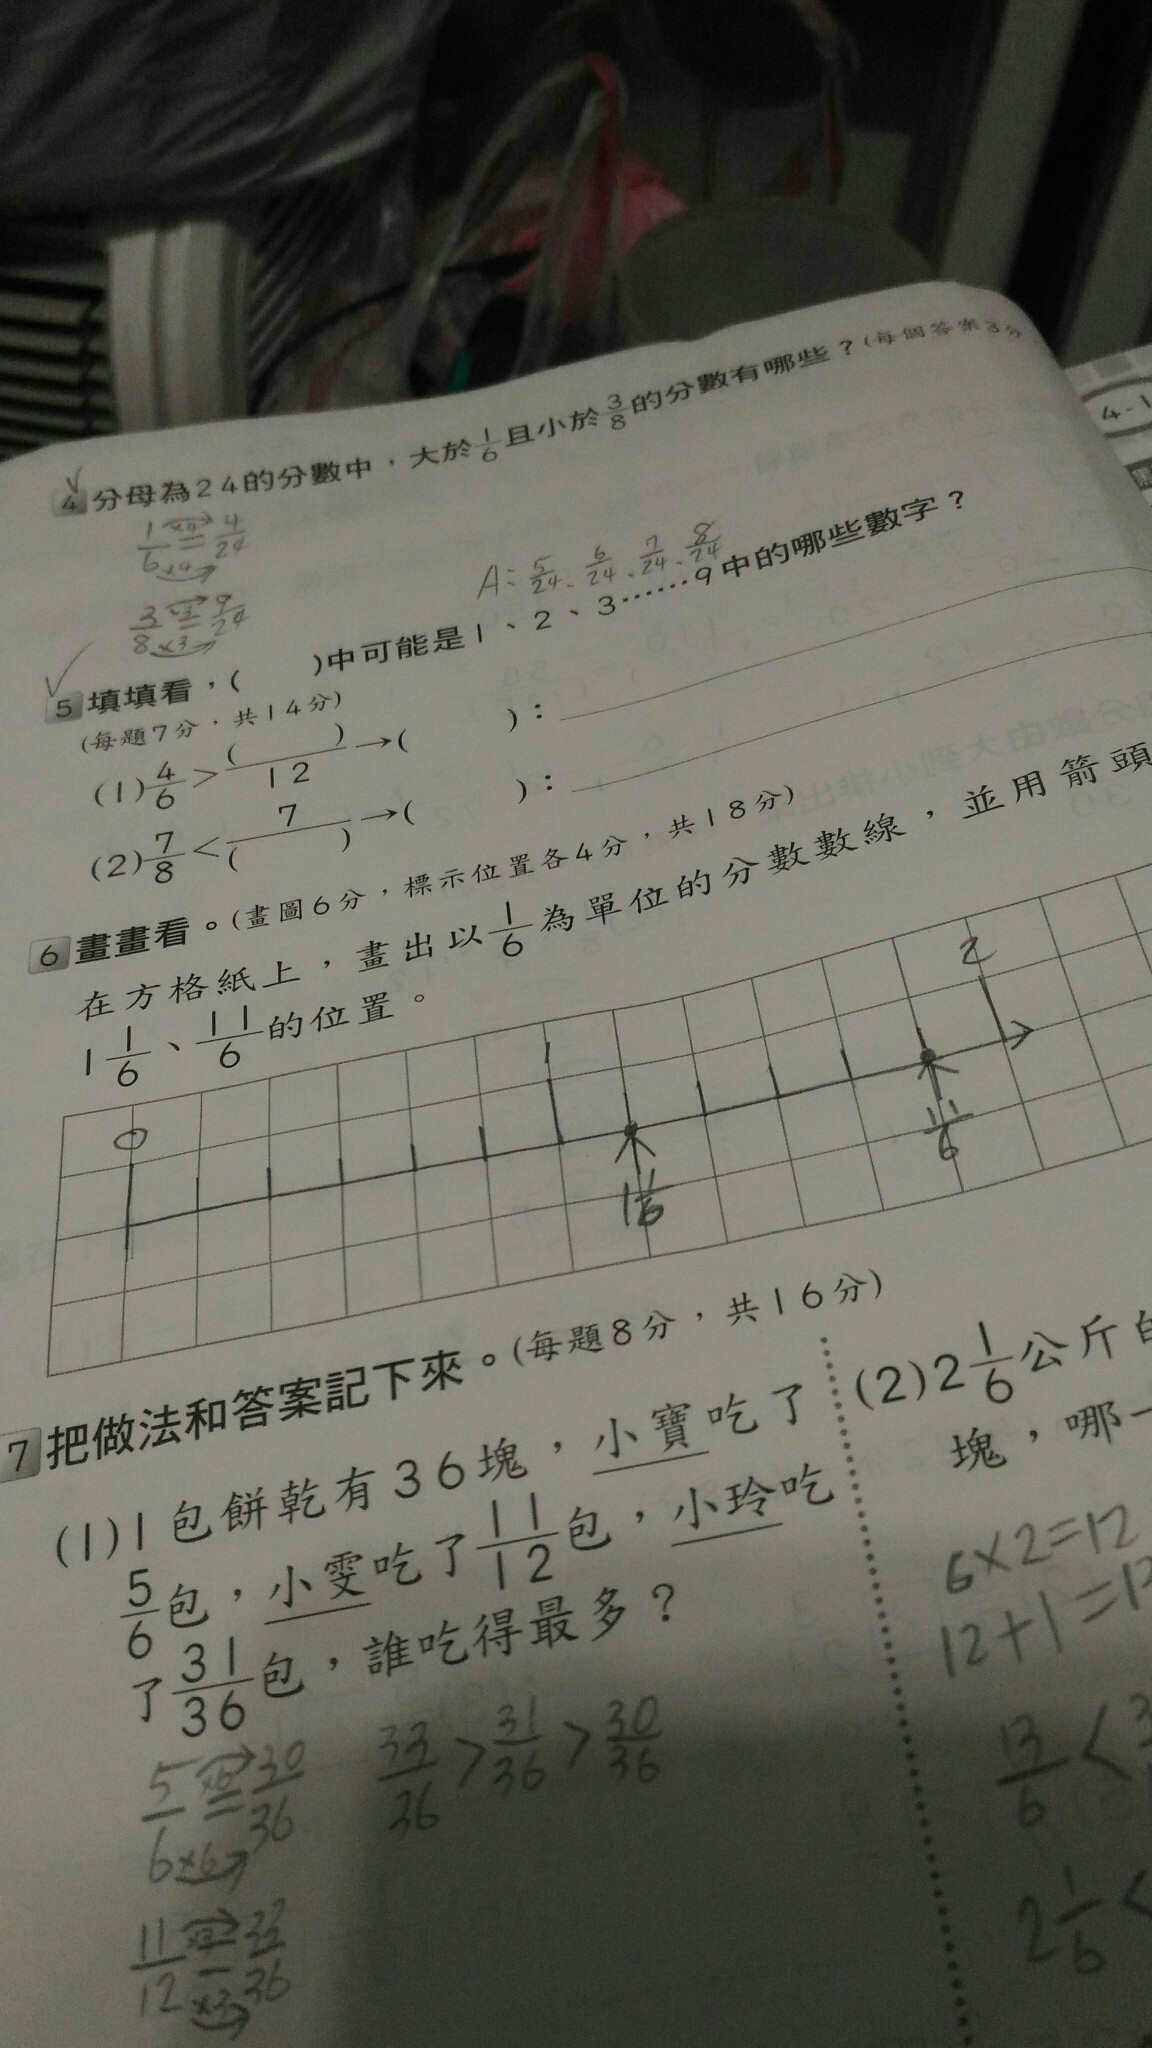 4-1
4 分母為24的分數中，大於1/6且小於3/8的分數有哪些？(每個答案3分
1/6 ×4 = 4/24 ×4
3/8 ×3 = 9/24 ×3
A: 5/24、6/24、7/24、8/24
5 填填看，( )中可能是1、2、3……9中的哪些數字？
(每題7分，共14分)
(1) 4/6 > ( )/12 →( )：
(2) 7/8 < 7/( ) →( )：
6 畫畫看。(畫圖6分，標示位置各4分，共18分)
在方格紙上，畫出以1/6為單位的分數數線，並用箭頭
1 1/6、11/6的位置。
0 1 2
1 1/6 11/6
7 把做法和答案記下來。(每題8分，共16分)
(1) 1包餅乾有36塊，小寶吃了
5/6包，小雯吃了11/12包，小玲吃
了31/36包，誰吃得最多？
5/6 ×6 = 30/36 ×6
33/36 > 31/36 > 30/36
11/12 ×3 = 33/36 ×3
(2) 2 1/6公斤的
塊，哪一
6×2=12
12+1=13
13/6 <
2 1/6 <